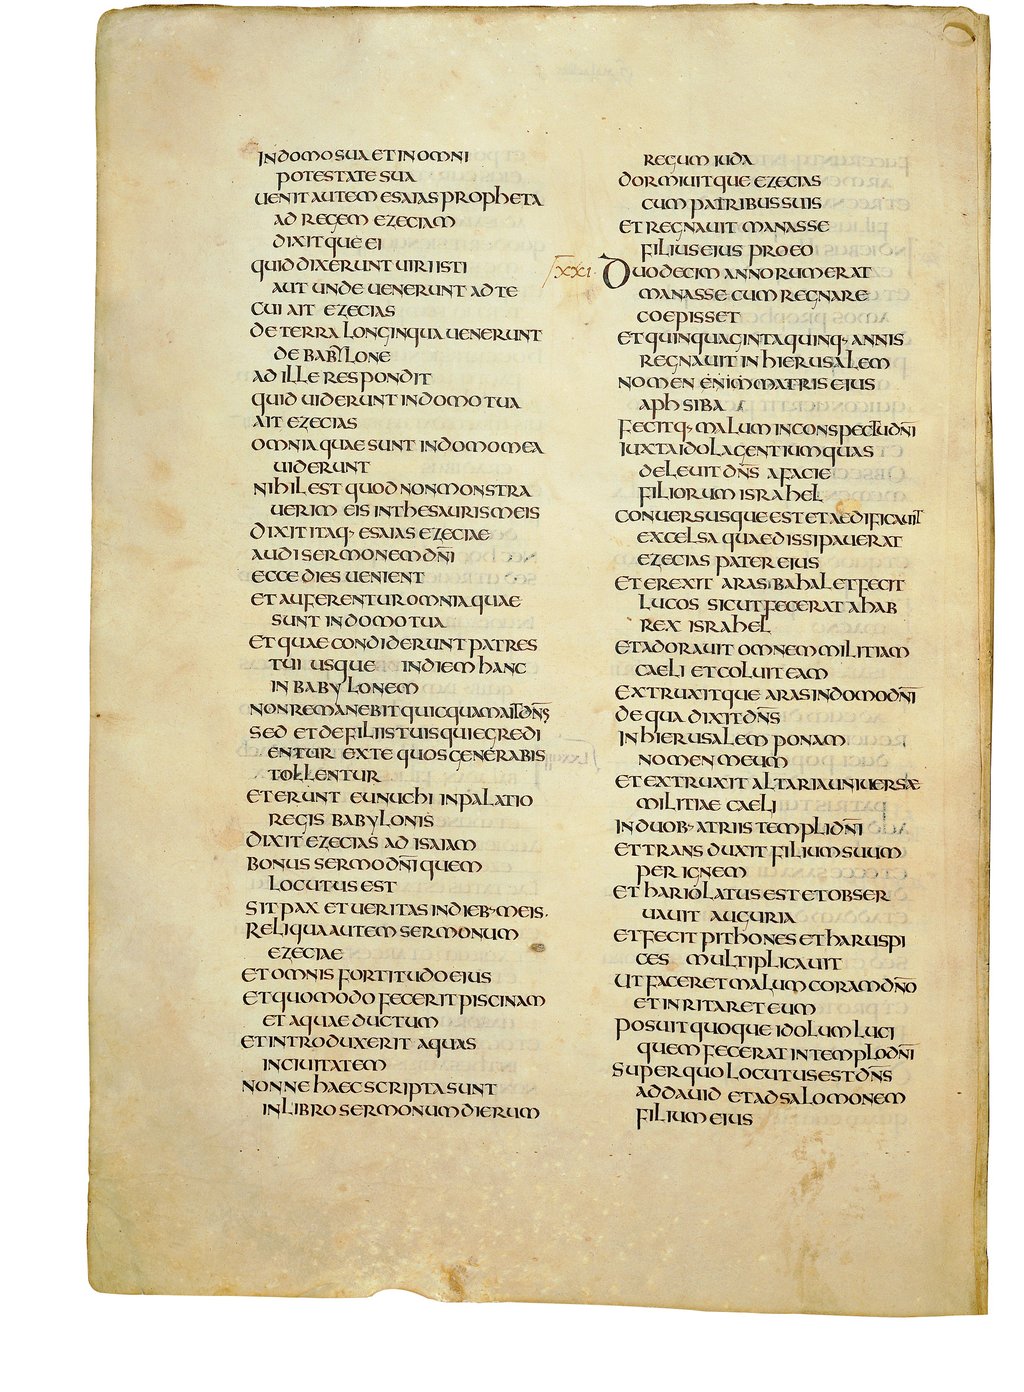 IN DOMO SUA ET IN OMNI
POTESTATE SUA
UENIT AUTEM ESAIAS PROPHETA
AD REGEM EZECIAM
DIXITQUE EI
QUID DIXERUNT UIRI ISTI
AUT UNDE UENERUNT AD TE
CUI AIT EZECIAS
DE TERRA LONGINQUA UENERUNT
DE BABYLONE
AD ILLE RESPONDIT
QUID UIDERUNT IN DOMO TUA
AIT EZECIAS
OMNIA QUAE SUNT IN DOMO MEA
UIDERUNT
NIHIL EST QUOD NON MONSTRA
UERIM EIS IN THESAURIS MEIS
DIXIT ITAQ· ESAIAS EZECIAE
AUDI SERMONEM DN̅I
ECCE DIES UENIENT
ET AUFERENTUR OMNIA QUAE
SUNT IN DOMO TUA
ET QUAE CONDIDERUNT PATRES
TUI USQUE IN DIEM HANC
IN BABYLONEM
NON REMANEBIT QUICQUAM AIT DN̅S
SED ET DE FILIIS TUIS QUI EGREDI
ENTUR EX TE QUOS GENERABIS
TOLLENTUR
ET ERUNT EUNUCHI IN PALATIO
REGIS BABYLONIS
DIXIT EZECIAS AD ISAIAM
BONUS SERMO DN̅I QUEM
LOCUTUS EST
SIT PAX ET UERITAS IN DIEB· MEIS.
RELIQUA AUTEM SERMONUM
EZECIAE
ET OMNIS FORTITUDO EIUS
ET QUOMODO FECERIT PISCINAM
ET AQUAEDUCTUM
ET INTRODUXERIT AQUAS
IN CIUITATEM
NONNE HAEC SCRIPTA SUNT
IN LIBRO SERMONUM DIERUM
REGUM IUDA
DORMIUITQUE EZECIAS
CUM PATRIBUS SUIS
ET REGNAUIT MANASSE
FILIUS EIUS PRO EO
XXI· DUODECIM ANNORUM ERAT
MANASSE CUM REGNARE
COEPISSET
ET QUINQUAGINTA QUINQ· ANNIS
REGNAUIT IN HIERUSALEM
NOMEN ENIM MATRIS EIUS
APHSIBA
FECITQ· MALUM IN CONSPECTU DN̅I
IUXTA IDOLA GENTIUM QUAS
DELEUIT DN̅S A FACIE
FILIORUM ISRAHEL
CONUERSUSQUE EST ET AEDIFICAUIT
EXCELSA QUAE DISSIPAUERAT
EZECIAS PATER EIUS
ET EREXIT ARAS BAHAL ET FECIT
LUCOS SICUT FECERAT AHAB
REX ISRAHEL
ET ADORAUIT OMNEM MILITIAM
CAELI ET COLUIT EAM
EXTRUXITQUE ARAS IN DOMO DN̅I
DE QUA DIXIT DN̅S
IN HIERUSALEM PONAM
NOMEN MEUM
ET EXTRUXIT ALTARIA UNIUERSAE
MILITIAE CAELI
IN DUOB· ATRIIS TEMPLI DN̅I
ET TRANSDUXIT FILIUM SUUM
PER IGNEM
ET HARIOLATUS EST ET OBSER
UAUIT AUGURIA
ET FECIT PITHONES ET HARUSPI
CES MULTIPLICAUIT
UT FACERET MALUM CORAM DN̅O
ET INRITARET EUM
POSUIT QUOQUE IDOLUM LUCI
QUEM FECERAT IN TEMPLO DN̅I
SUPER QUO LOCUTUS EST DN̅S
AD DAUID ET AD SALOMONEM
FILIUM EIUS